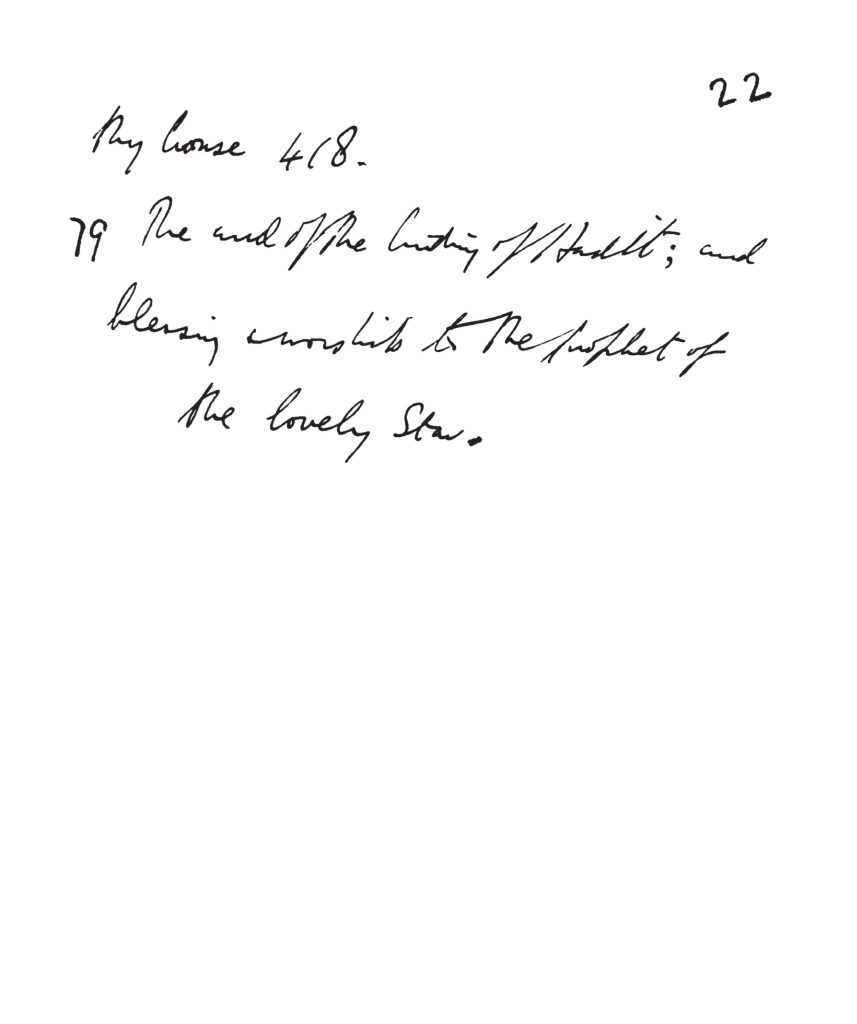 22
thy house 418.
79 The end of the hiding of Hadit; and
blessing & worship to the prophet of
the lovely Star.